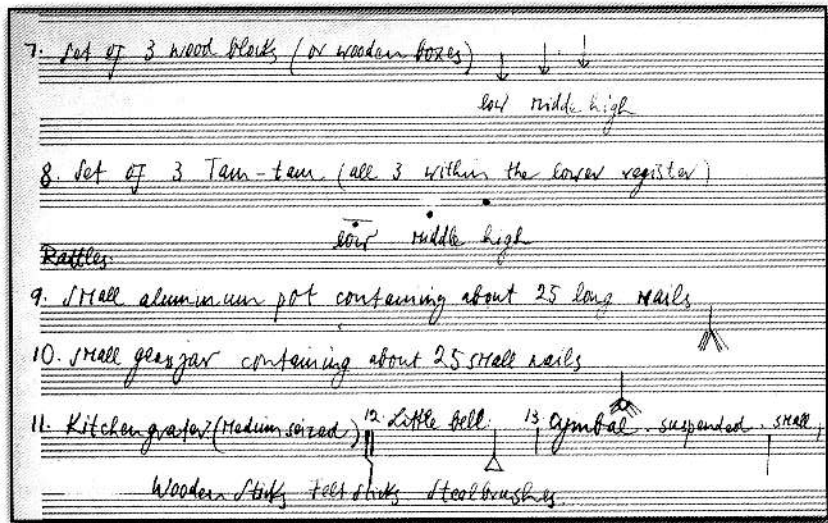 7. Set of 3 wood blocks (or wooden boxes)
low midde high
8. Set of 3 Tam-tam (all 3 within the lower register)
low middle high
Rattles:
9. Small aluminium pot containing about 25 long nails
10. Small glass jar containing about 25 small nails
11. Kitchen grater: (Medium seized) 12. Little bell: 13. Cymbal. suspended. small,
Wooden Sticks Felt sticks Steal brushes